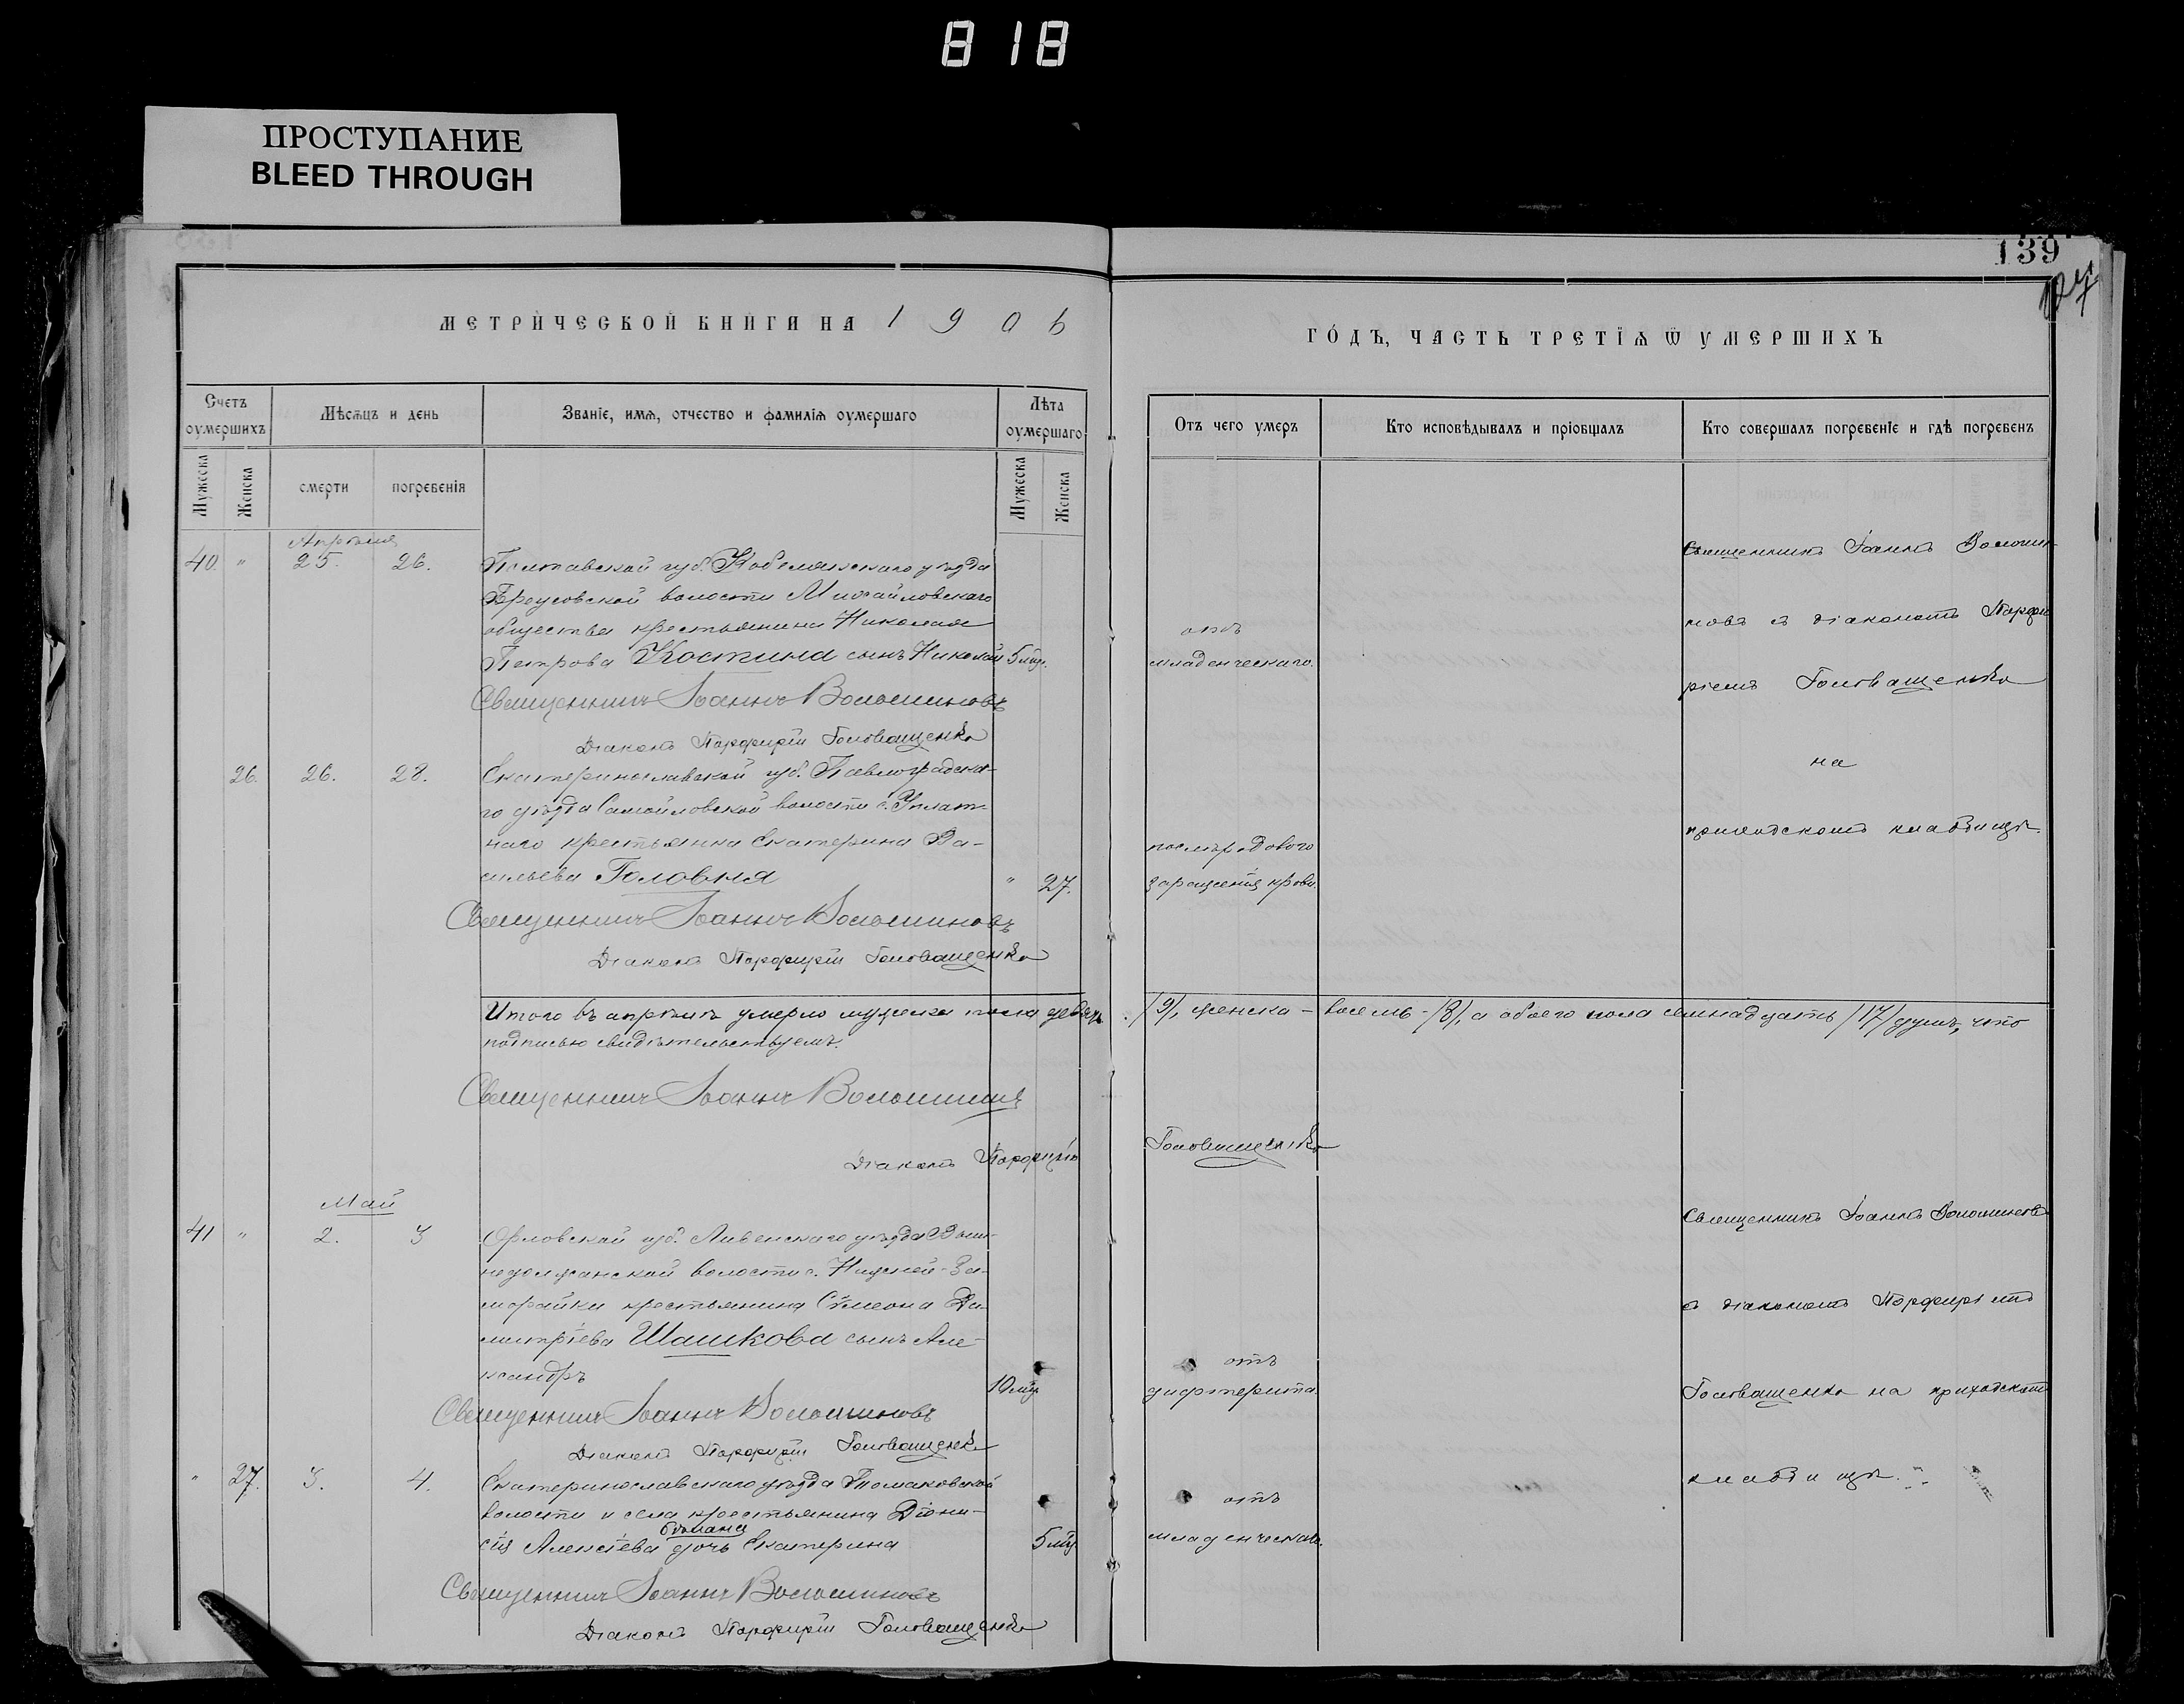 818
ПРОСТУПАНИЕ
BLEED THROUGH
139
МЕТРИЧЕСКОЙ КНИГИ НА 1906
ГОДЪ, ЧАСТЬ ТРЕТІѦ Ѿ УМЕРШИХЪ
Счетъ оумершихъ
Мѣсѧцъ и день
Званіе, имѧ, отчество и фамиліѧ оумершаго
Лѣта оумершаго
Отъ чего умеръ
Кто исповѣдывалъ и пріобщалъ
Кто совершалъ погребеніе и гдѣ погребенъ
Мужеска
Женска
смерти
погребенія
Мужеска
Женска
Апрѣля
40. " 25. 26.
Полтавской губ. Кобелякскаго уѣзда
Броусовской волости Михайловскаго
общества крестьянина Николая
Петрова Костина сынъ Николай 5 мѣс.
отъ
младенческаго.
Священникъ Іоаннъ Волошиновъ
Діаконъ Порфирій Головащенко
Священникъ Іоаннъ Волоши-
новъ съ діакономъ Порфи
ріемъ Головащенко
на
приходскомъ кладбищѣ.
26. 26. 28.
Екатеринославской губ. Павлоградска-
го уѣзда Самойловской волости с. Уплат-
наго крестьянка Екатерина Ва-
сильева Головня " 27.
послѣродового
зараженія крови.
Священникъ Іоаннъ Волошиновъ
Діаконъ Порфирій Головащенко
Итого въ апрѣлѣ умерло мужеска пола девять /9/, женска - восемь - /8/, а обоего пола семнадцать /17/ душъ, что
подписью свидѣтельствуемъ.
Священникъ Іоаннъ Волошиновъ
Діаконъ Порфирій Головащенко
Май
41 " 2. 3
Орловской губ. Ливенскаго уѣзда Выш-
недолжанской волости с. Нижней-За-
морайки крестьянина Сѵмеона Ди-
митріева Шашкова сынъ Але-
ксандръ 10 мѣс
отъ
дифтерита.
Священникъ Іоаннъ Волошиновъ
Діаконъ Порфирій Головащенко
Священникъ Іоаннъ Волошиновъ
съ діакономъ Порфиріемъ
Головащенко на приходскомъ
кладбищѣ.
" 27. 3. 4.
Екатеринославскаго уѣзда Томаковской
волости и села крестьянина Діони-
сія Алексіева дочь Екатерина 5 мѣс
отъ
младенческаго.
Священникъ Іоаннъ Волошиновъ
Діаконъ Порфирій Головащенко